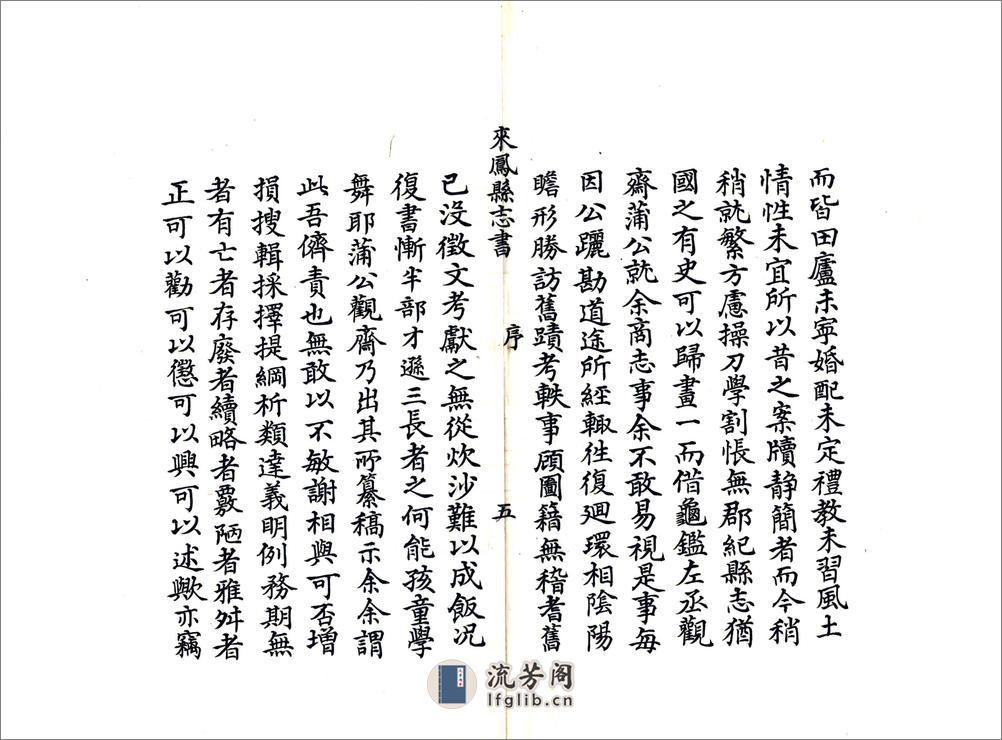 而皆田廬未寧婚配未定禮教未習風土
情性未宜所以昔之案牘静簡者而今稍
稍就繁方慮操刀學割悵無郡紀縣志猶
國之有史可以歸畫一而借龜鑑左丞觀
齋蒲公就余商志事余不敢易視是事每
因公躧勘道途所經輙徃復廻環相陰陽
瞻形勝訪舊蹟考軼事顧圖籍無稽耆舊
來鳳縣志書 序 五
已没徵文考獻之無從炊沙難以成飯况
復書慚半部才遜三長者之何能孩童學
舞耶蒲公觀齋乃出其所纂稿示余余謂
此吾儕責也無敢以不敏謝相與可否增
損搜輯採擇提綱析類達義明例務期無
者有亡者存廢者續略者覈陋者雅舛者
正可以勸可以懲可以興可以述歟亦竊
流芳阁
lfglib.cn